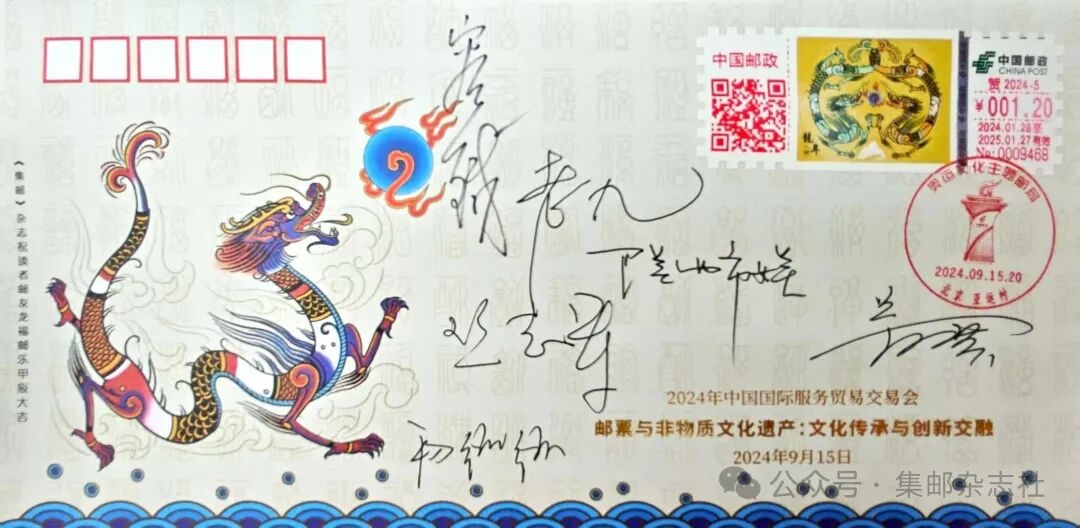 中国邮政
中国邮政
CHINA POST
贺 2024-5
¥001.20
2024.01.28至
2025.01.27有效
No: 0009468
龍年
奥运文化主题邮局
2024.09.15.20
北京 亚运村
《集邮》杂志祝读者邮友龙福邮乐甲辰大吉
老九
2024年中国国际服务贸易交易会
邮票与非物质文化遗产:文化传承与创新交融
2024年9月15日
公众号·集邮杂志社